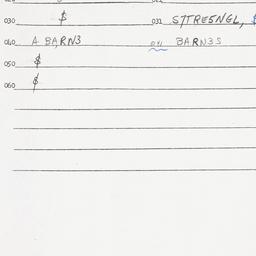 030 $ 031 S/TRESNGL, $
040 A BARN3 041 BARN3S
050 $
060 $